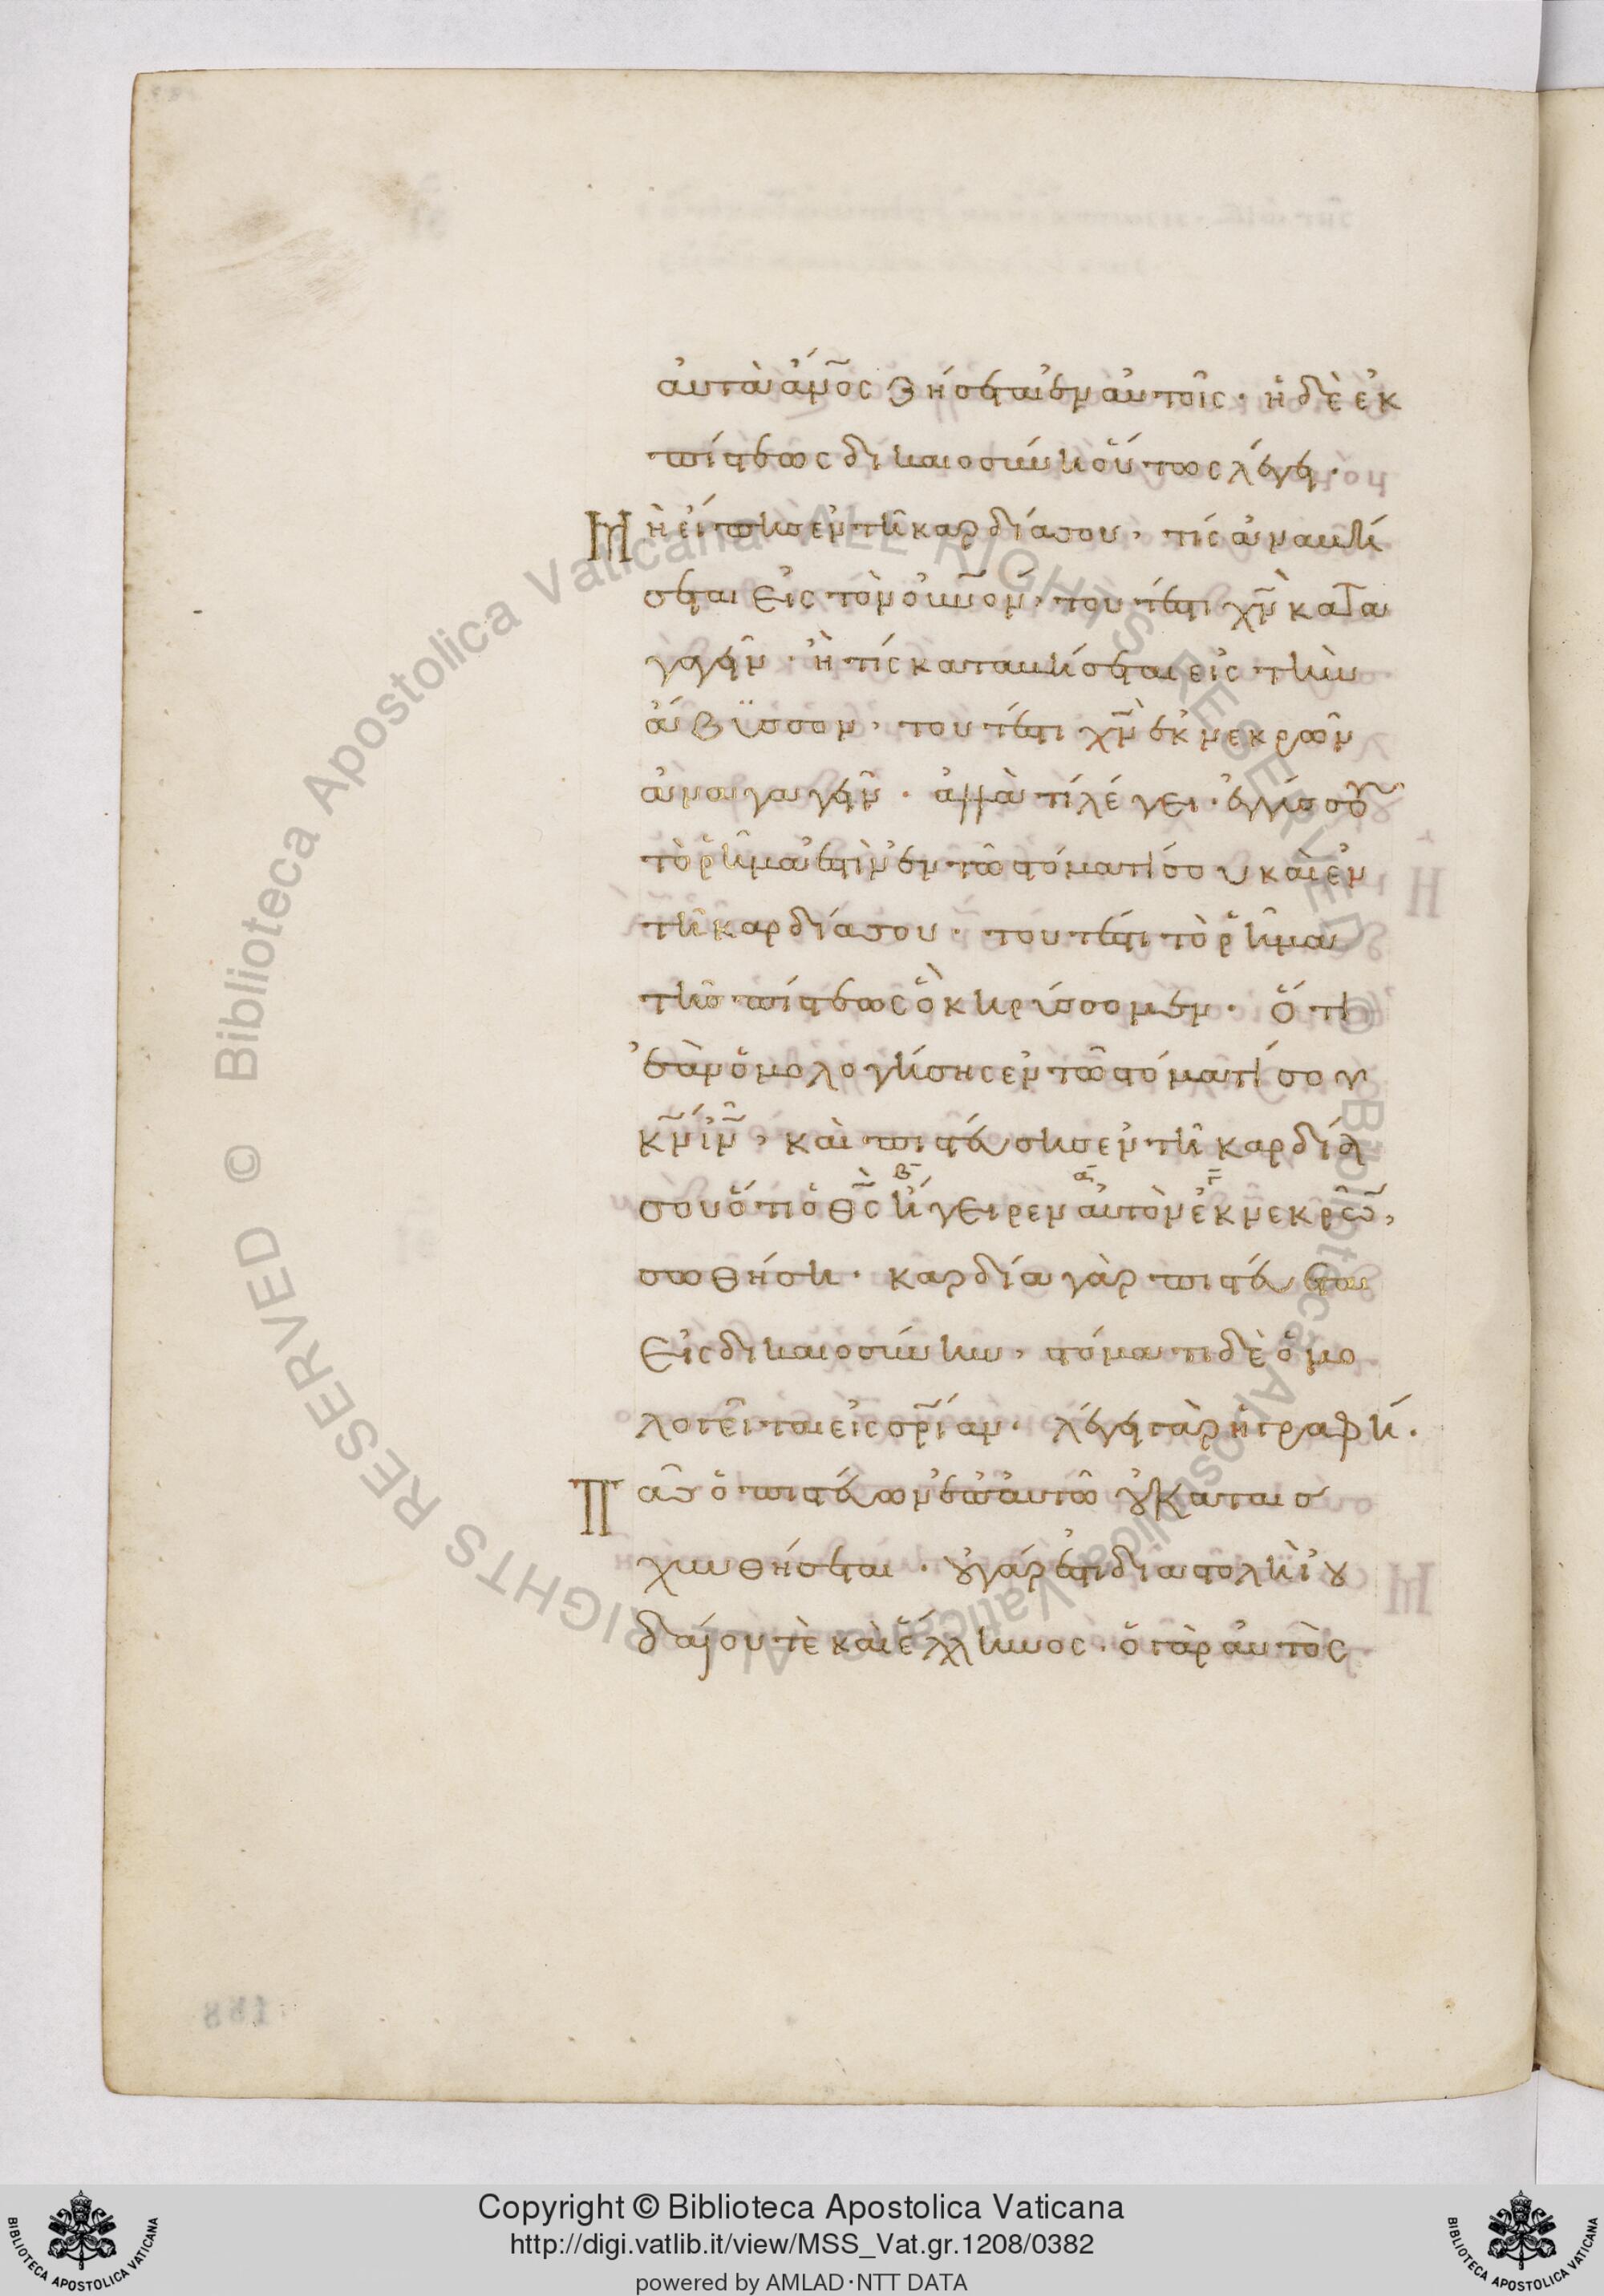 αὐτὰ ἄν̅ος ζήσεται ἐν αὐτοῖς· ἡ δὲ ἐκ
πίστεως δικαιοσύνη οὕτως λέγει·
Μὴ εἴπης ἐν τῆ καρδία σου, τίς ἀναβή
σεται εἰς τὸν οὐν̅ον, τουτέστι χν̅ κατα
γαγεῖν· ἢ τίς καταβήσεται εἰς τὴν
ἄβυσσον, τουτέστι χν̅ ἐκ νεκρῶν
ἀναγαγεῖν· ἀλλὰ τί λέγει· ἐγγύς σου
τὸ ῥῆμα ἐστὶν ἐν τῶ στόματί σου καὶ ἐν
τῆ καρδία σου· τουτέστι τὸ ῥῆμα
τῆς πίστεως ὃ κηρύσσομεν· ὅτι
ἐὰν ὁμολογήσης ἐν τῶ στόματί σου
κν̅ ιν̅, καὶ πιστεύσης ἐν τῆ καρδία
β̅ α̅ γ̅
σου ὅτι ὁ θς̅ ἤγειρεν αὐτὸν ἐκ νεκρῶν,
σωθήση· καρδία γὰρ πιστεύεται
εἰς δικαιοσύνην, στόματι δὲ ὁμο
λογεῖται εἰς σρ̅ίαν· λέγει γὰρ ἡ γραφή·
Πᾶς ὁ πιστεύων ἐπ αὐτῶ οὐ καταισ
χυνθήσεται· οὐ γάρ ἐστι διαστολὴ ἰου
δαίου τὲ καὶ ἕλληνος· ὁ γὰρ αὐτὸς
188
Copyright © Biblioteca Apostolica Vaticana
http://digi.vatlib.it/view/MSS_Vat.gr.1208/0382
powered by AMLAD·NTT DATA
BIBLIOTECA APOSTOLICA VATICANA
BIBLIOTECA APOSTOLICA VATICANA
© Biblioteca Apostolica Vaticana ALL RIGHTS RESERVED
© Biblioteca Apostolica Vaticana ALL RIGHTS RESERVED